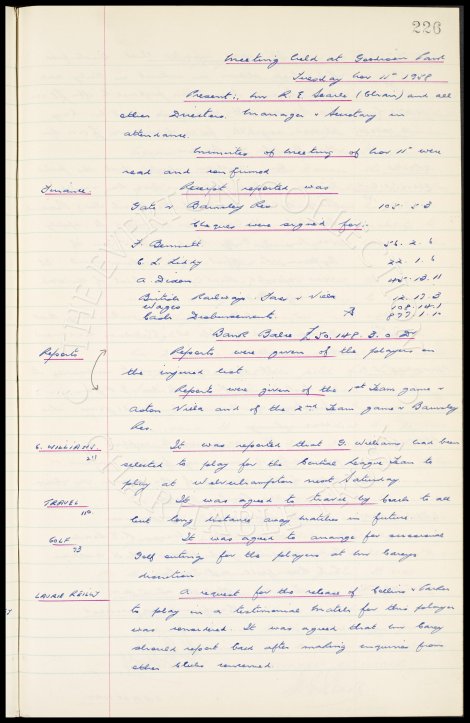 226
Meeting held at Goodison Park
Tuesday Nov 11th 1958
Present:. Mr R. E. Searle (Chair) and all
other Directors. Manager & Secretary in
attendance.
Minutes of Meeting of Nov 11th were
read and confirmed
Finance. Receipt reported was
Gate v Barnsley Res 105. 5. 3
Cheques were signed for:-
F. Bennett 56. 2. 6
C. L. 22. 1. 6
A. Dixon 45. 13. 11
British Railways. Fares v Villa 12. 17. 3
Wages 108. 14. 1
Cash Disbursements. 877. 1. 10
Bank Balce £50,148. 3. 0 Dr
Reports Reports were given of the players on
the injured list
Reports were given of the 1st Team game v
Aston Villa and of the 2nd Team game v Barnsley
Res.
G. WILLIAMS. It was reported that G. Williams, had been
selected to play for the Central League Team to
play at Wolverhampton next Saturday
TRAVEL It was agreed to travel by Coach to all
but long distance away matches in future.
GOLF 73 It was agreed to arrange for
Golf outing for the players at Mr Careys
discretion
LAURIE REILLY A request for the release of Collins & Parker
to play in a testimonial match for this player
was considered. It was agreed that Mr Carey
should report back after making enquiries from
other Clubs concerned.
THE EVERTON COLLECTION
CHARITABLE TRUST